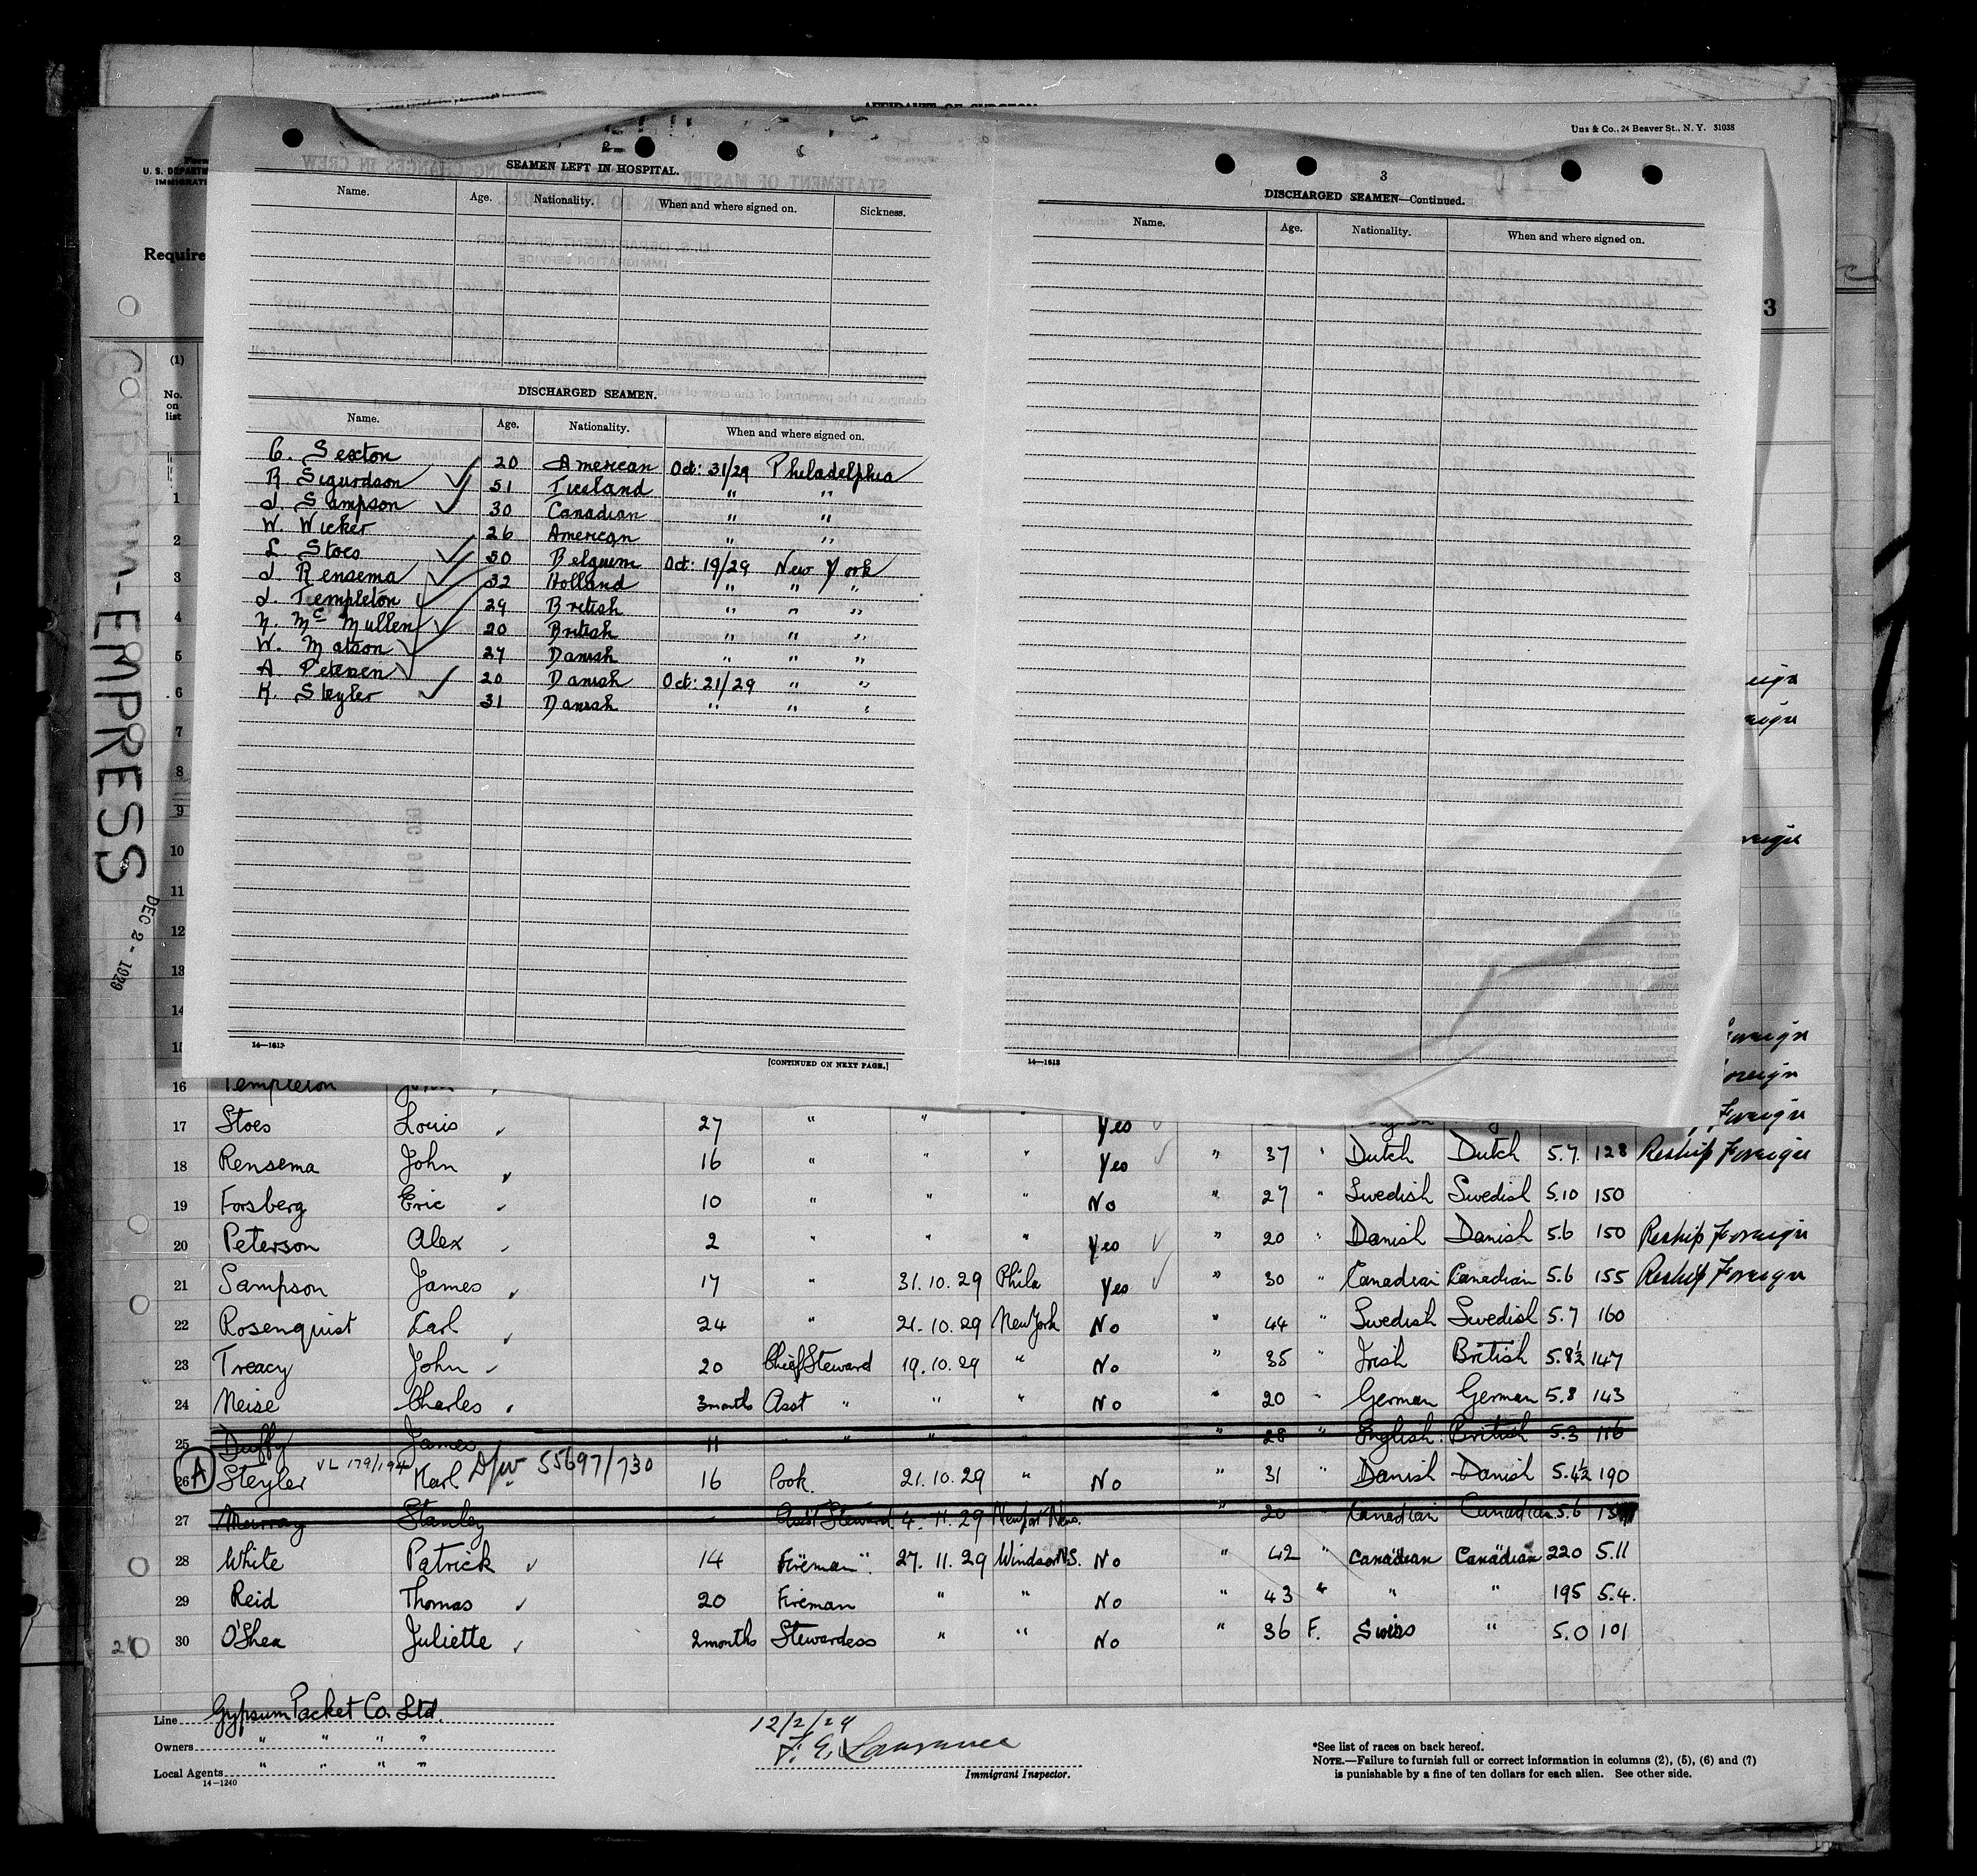 AFFIDAVIT OF SURGEON
Uns & Co., 24 Beaver St., N. Y. 31038
Form
U. S. DEPARTM
IMMIGRATI
Require
3
(1)
No.
on
list
GYPSUM-EMPRESS
DEC 2 - 1929
SEAMEN LEFT IN HOSPITAL.
Name. Age. Nationality. When and where signed on. Sickness.
DISCHARGED SEAMEN.
Name. Age. Nationality. When and where signed on.
C. Sexton 20 American Oct: 31/29 Philadelphia
R. Sigurdson 51 Iceland " "
J. Sampson 30 Canadian " "
W. Wicker 26 American " "
L. Stoes 50 Belguem Oct: 19/29 New York
J. Rensema 32 Holland " " "
J. Templeton 29 British " " "
N. McMullen 20 British " " "
W. Matson 27 Danish " " "
A. Petersen 20 Danish Oct: 21/29 " "
K. Steyler 31 Danish " " "
14—1613
[CONTINUED ON NEXT PAGE.]
3
DISCHARGED SEAMEN—Continued.
Name. Age. Nationality. When and where signed on.
14—1613
1
2
3
4
5
6
7
8
9
10
11
12
13
14
15
16 Templeton John
17 Stoes Louis 27 " " " Yes Foreign
18 Rensema John 16 " " " Yes " 37 " Dutch Dutch 5.7. 128 Reship Foreign
19 Forsberg Eric 10 " " " No " 27 " Swedish Swedish 5.10 150
20 Peterson Alex 2 " " " Yes " 20 " Danish Danish 5.6 150 Reship Foreign
21 Sampson James 17 " 31.10.29 Phila Yes " 30 " Canadian Canadian 5.6 155 Reship Foreign
22 Rosenquist Carl 24 " 21.10.29 New York No " 44 " Swedish Swedish 5.7 160
23 Treacy John 20 Chief Steward 19.10.29 " No " 35 " Irish British 5.8½ 147
24 Neise Charles 3 months Asst " " " No " 20 " German German 5.8 143
25 Duffy James 11 " " " " " 28 " English British 5.3 116
VL 179/194 D/W 55697/730
26 A Steyler Karl 16 Cook. 21.10.29 " No " 31 " Danish Danish 5.4½ 190
27 Murray Stanley - Asst Steward 4.11.29 Newport News. " 20 " Canadian Canadian 5.6
28 White Patrick 14 Fireman 27.11.29 Windsor N.S. No " 42 " Canadian Canadian 220 5.11
29 Reid Thomas 20 Fireman " " No " 43 " " " 195 5.4.
30 O'Shea Juliette 2 months Stewardess " " No " 36 F. Swiss " 5.0 101
Line Gypsum Packet Co. Ltd.
Owners " " " "
Local Agents " " " "
14—1240
12/2/29
F. E. Lawrance
Immigrant Inspector.
*See list of races on back hereof.
NOTE.—Failure to furnish full or correct information in columns (2), (5), (6) and (7)
is punishable by a fine of ten dollars for each alien. See other side.